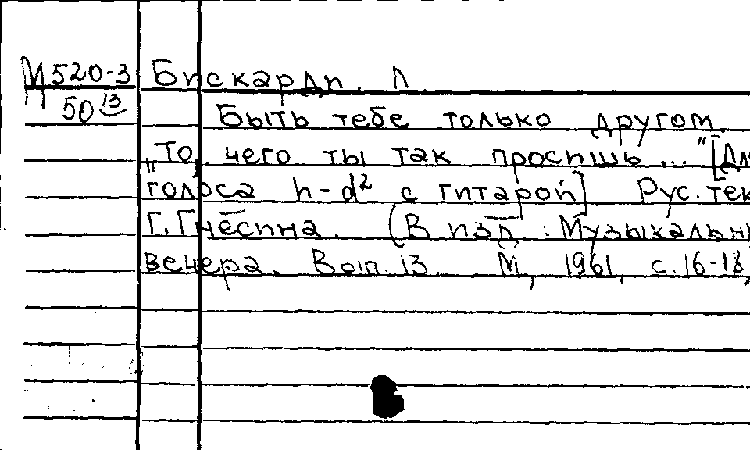 М 520-3 Бискарди. Л.
50 13 Быть тебе только другом.
„То, чего ты так просишь..." [Дл
голоса h-d² с гитарой] Рус. тек
Г. Гнесина. (В изд.: Музыкальны
вечера. Вып. 13. М, 1961, с. 16-18,